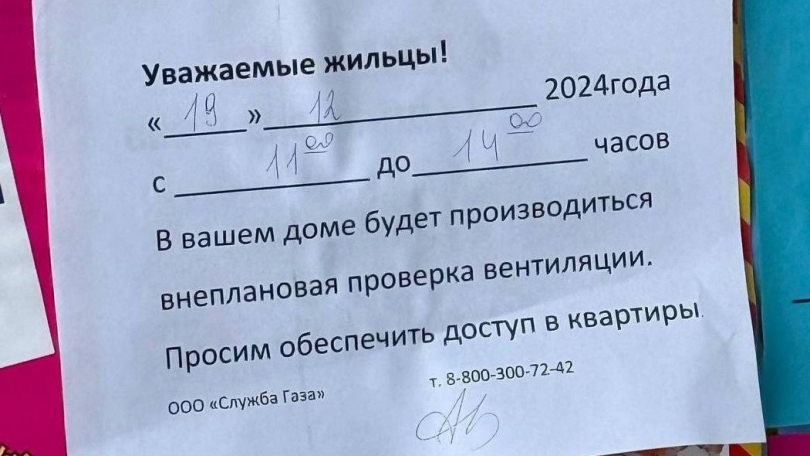 Уважаемые жильцы!
« 19 » 12 2024года
с 11 00 до 14 00 часов
В вашем доме будет производиться
внеплановая проверка вентиляции.
Просим обеспечить доступ в квартиры.
ООО «Служба Газа» т. 8-800-300-72-42